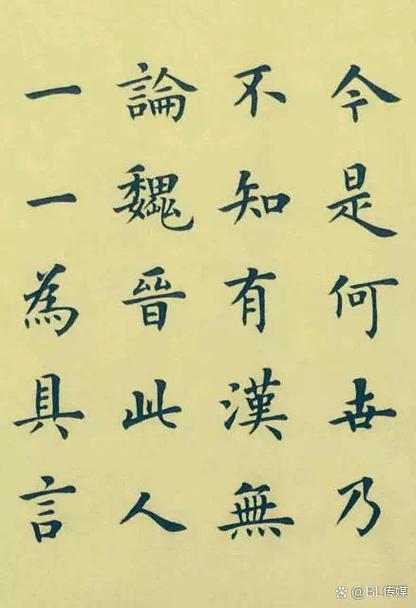 今是何世乃
不知有漢無
論魏晉此人
一一為具言
@BL传媒